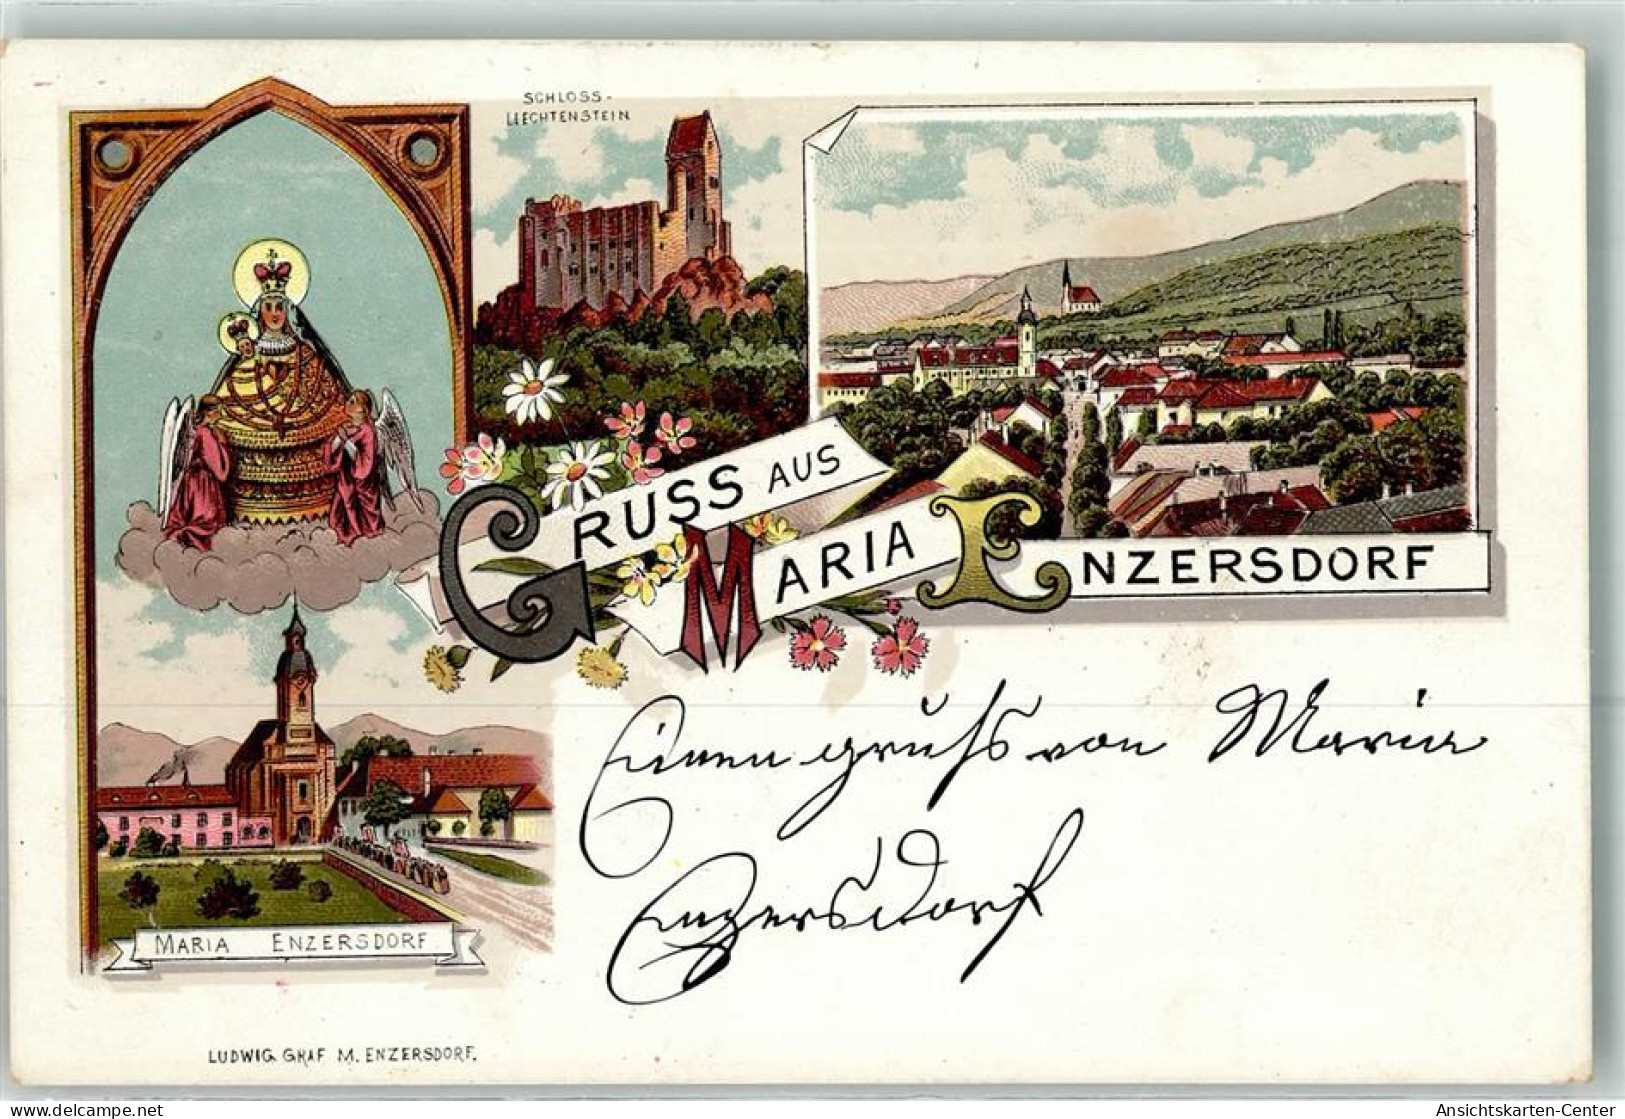 SCHLOSS-
LIECHTENSTEIN
GRUSS AUS
MARIA ENZERSDORF
Einen gruß von Maria
Enzersdorf
MARIA ENZERSDORF
LUDWIG GRAF M. ENZERSDORF.
delcampe.net
Ansichtskarten-Center